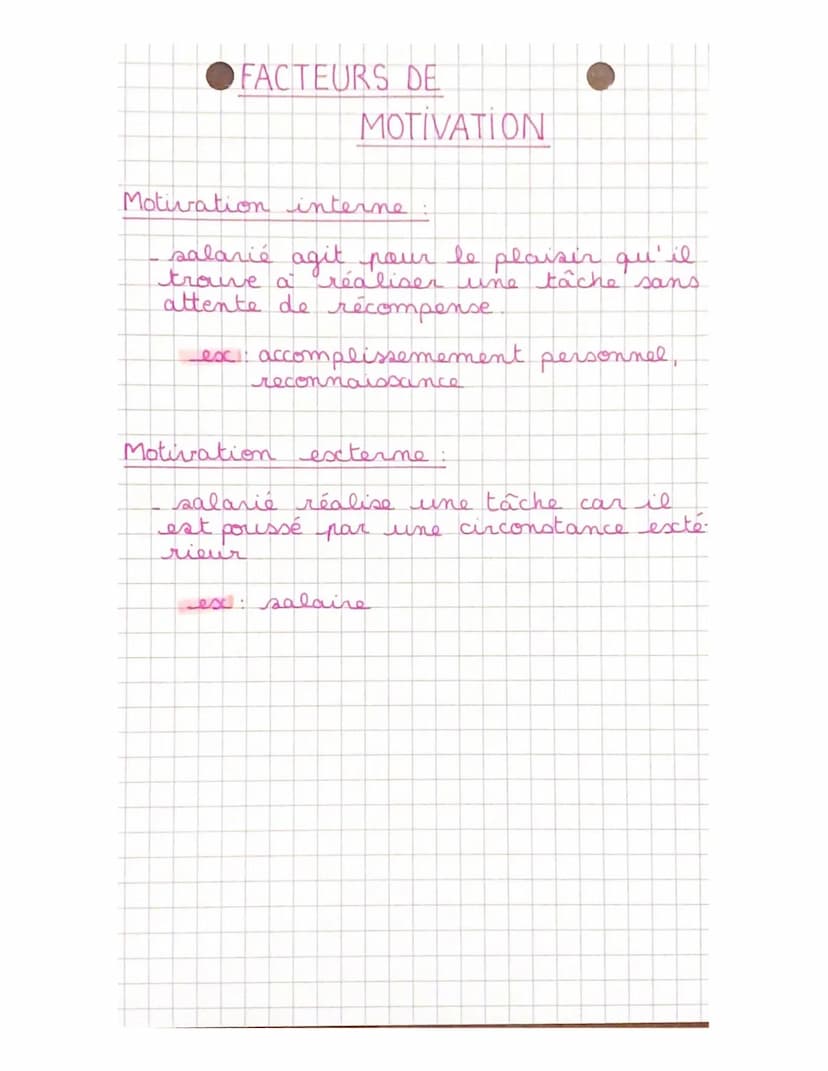 FACTEURS DE
MOTIVATION
Motivation interne :
- salarié agit pour le plaisir qu'il
trouve à réaliser une tâche sans
attente de récompense.
ex : accomplissemement personnel,
reconnaissance
Motivation externe :
- salarié réalise une tâche car il
est poussé par une circonstance exté-
rieur
ex : salaire